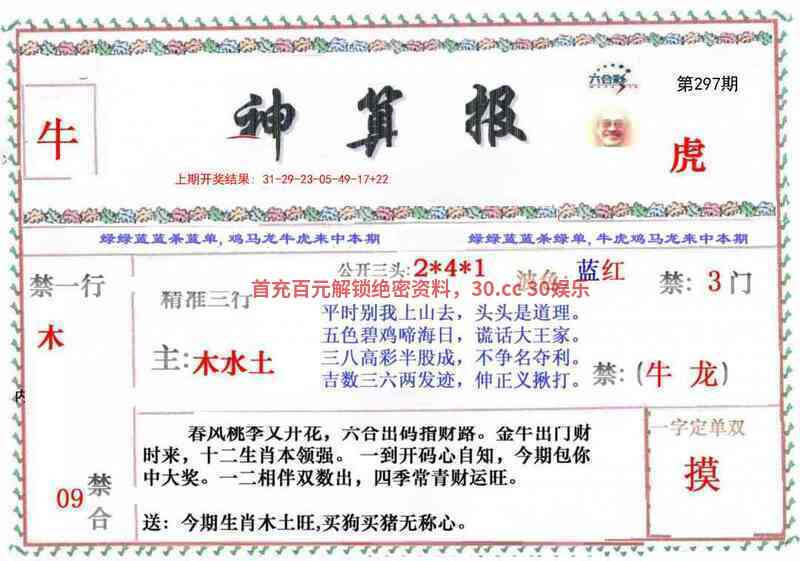 牛
神算报
六合彩
第297期
虎
上期开奖结果：31-29-23-05-49-17+22
绿绿蓝蓝杀蓝单,鸡马龙牛虎来中本期
绿绿蓝蓝杀绿单,牛虎鸡马龙来中本期
禁一行
木
公开三头:2*4*1
波色:蓝红
禁:3门
首充百元解锁绝密资料，30.cc 30娱乐
精准三行
主:木水土
平时别我上山去，头头是道理。
五色碧鸡啼海日，谎话大王家。
三八高彩半股成，不争名夺利。
吉数三六两发迹，伸正义揪打。
禁:(牛 龙)
内
春风桃李又开花，六合出码指财路。金牛出门财
时来，十二生肖本领强。一到开码心自知，今期包你
中大奖。一二相伴双数出，四季常青财运旺。
送：今期生肖木土旺,买狗买猪无称心。
09禁合
一字定单双
摸